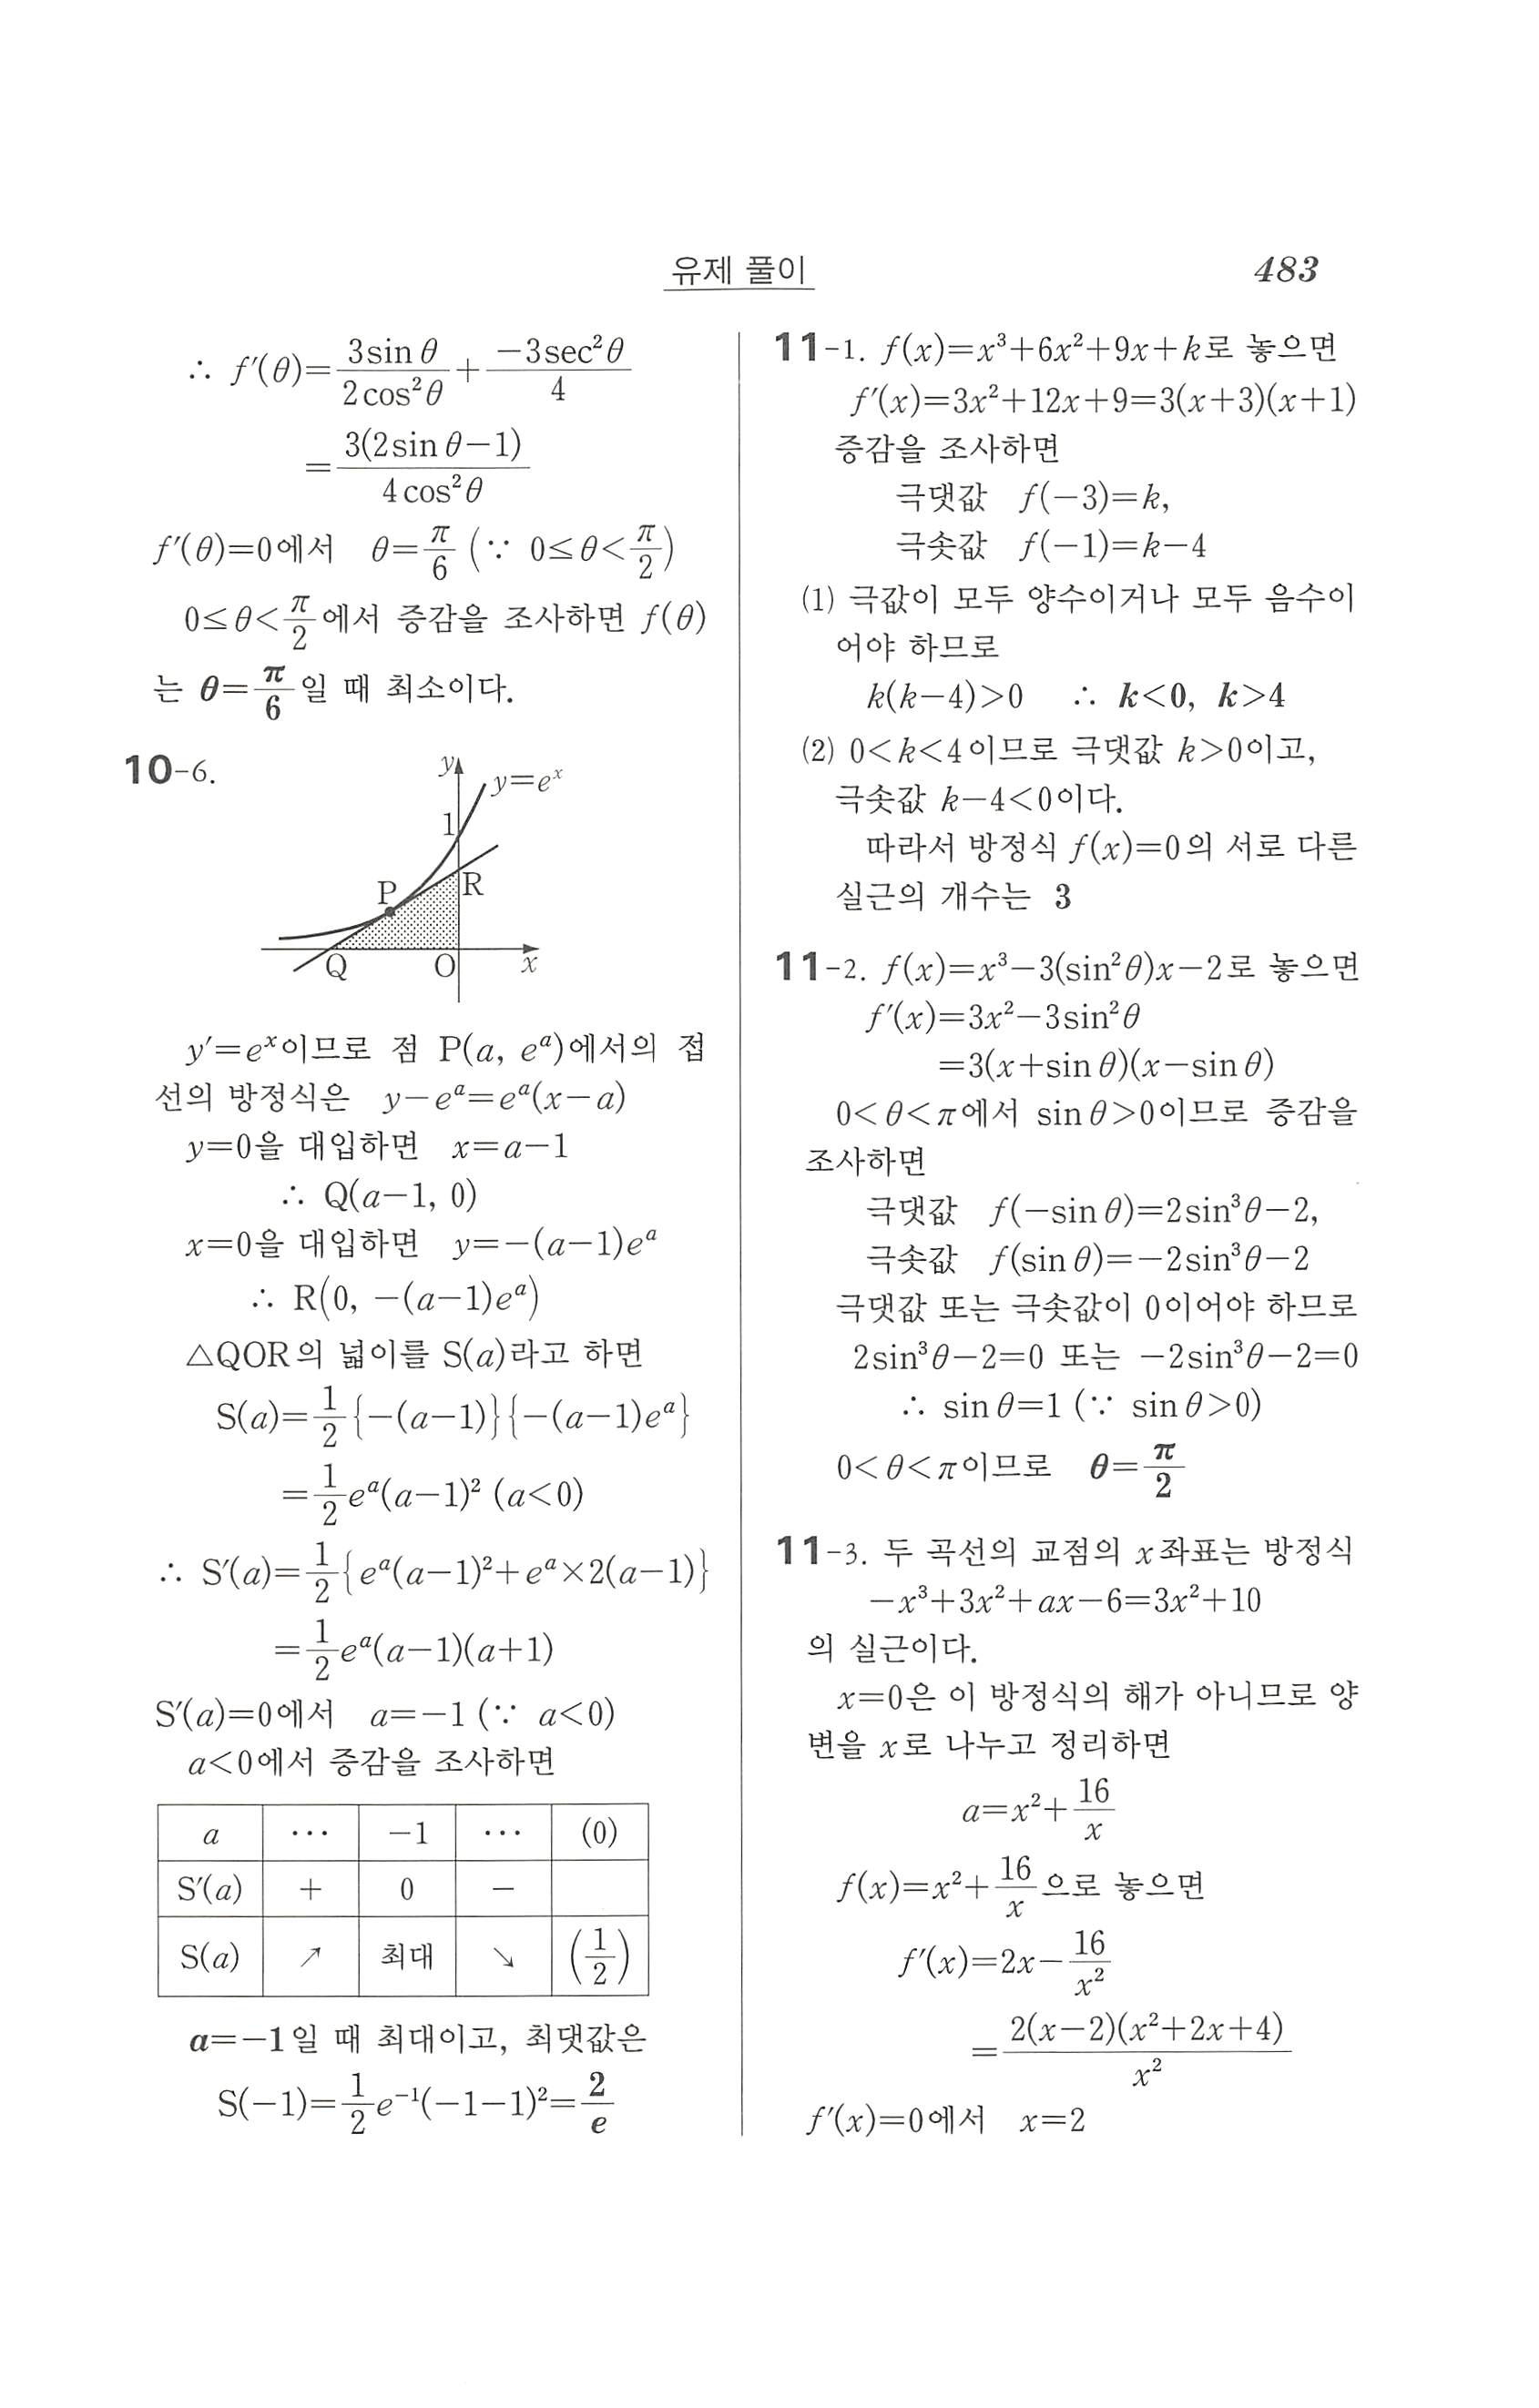 유제 풀이 483
∴ f′(θ)=3sin θ/2cos²θ + −3sec²θ/4
=3(2sin θ−1)/4cos²θ
f′(θ)=0에서 θ=π/6 (∵ 0≤θ<π/2)
0≤θ<π/2에서 증감을 조사하면 f(θ)
는 θ=π/6일 때 최소이다.
10-6.
y
y=eˣ
1
P
R
Q
O
x
y′=eˣ이므로 점 P(a, eᵃ)에서의 접
선의 방정식은 y−eᵃ=eᵃ(x−a)
y=0을 대입하면 x=a−1
∴ Q(a−1, 0)
x=0을 대입하면 y=−(a−1)eᵃ
∴ R(0, −(a−1)eᵃ)
△QOR의 넓이를 S(a)라고 하면
S(a)=1/2{−(a−1)}{−(a−1)eᵃ}
=1/2eᵃ(a−1)² (a<0)
∴ S′(a)=1/2{eᵃ(a−1)²+eᵃ×2(a−1)}
=1/2eᵃ(a−1)(a+1)
S′(a)=0에서 a=−1 (∵ a<0)
a<0에서 증감을 조사하면
a ⋯ −1 ⋯ (0)
S′(a) + 0 −
S(a) ↗ 최대 ↘ (1/2)
a=−1일 때 최대이고, 최댓값은
S(−1)=1/2e⁻¹(−1−1)²=2/e
11-1. f(x)=x³+6x²+9x+k로 놓으면
f′(x)=3x²+12x+9=3(x+3)(x+1)
증감을 조사하면
극댓값 f(−3)=k,
극솟값 f(−1)=k−4
(1) 극값이 모두 양수이거나 모두 음수이
어야 하므로
k(k−4)>0 ∴ k<0, k>4
(2) 0<k<4이므로 극댓값 k>0이고,
극솟값 k−4<0이다.
따라서 방정식 f(x)=0의 서로 다른
실근의 개수는 3
11-2. f(x)=x³−3(sin²θ)x−2로 놓으면
f′(x)=3x²−3sin²θ
=3(x+sin θ)(x−sin θ)
0<θ<π에서 sin θ>0이므로 증감을
조사하면
극댓값 f(−sin θ)=2sin³θ−2,
극솟값 f(sin θ)=−2sin³θ−2
극댓값 또는 극솟값이 0이어야 하므로
2sin³θ−2=0 또는 −2sin³θ−2=0
∴ sin θ=1 (∵ sin θ>0)
0<θ<π이므로 θ=π/2
11-3. 두 곡선의 교점의 x좌표는 방정식
−x³+3x²+ax−6=3x²+10
의 실근이다.
x=0은 이 방정식의 해가 아니므로 양
변을 x로 나누고 정리하면
a=x²+16/x
f(x)=x²+16/x으로 놓으면
f′(x)=2x−16/x²
=2(x−2)(x²+2x+4)/x²
f′(x)=0에서 x=2